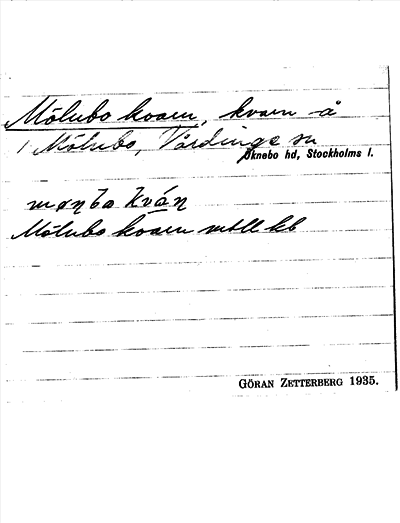 Mölnbo kvarn, kvarn å
/ Mölnbo, Vårdinge sn
Öknebo hd, Stockholms l.
Mölnbo kvarn mtll kb
GÖRAN ZETTERBERG 1935.